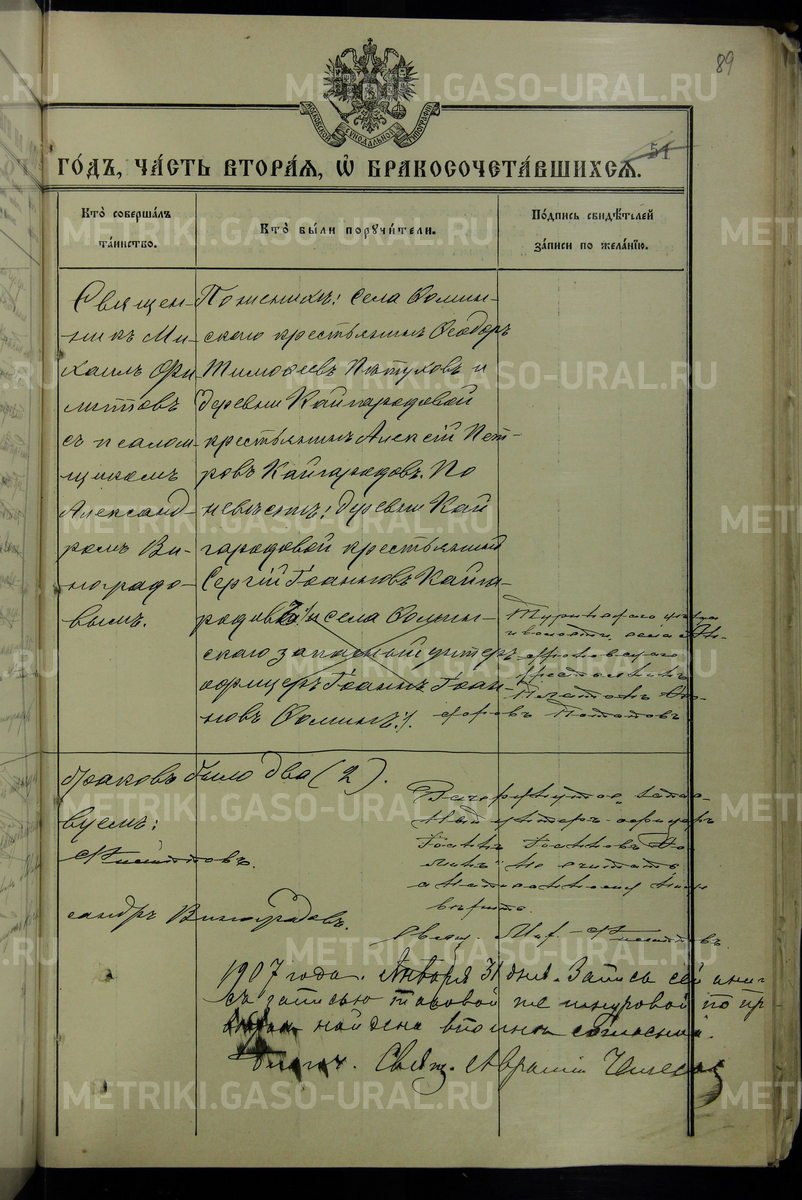 89
МОСКОВСКОЙ СѴНОДАЛЬНОЙ ТИПОГРАФІИ
51
ГО́ДЪ, ЧА́СТЬ ВТОРА́Я, Ѡ БРАКОСОЧЕТА́ВШИХСЯ.
Кто̀ соверша́лъ
та́инство.
Кто̀ бы́ли поручи́тели.
По́дпись свидѣ́телей
за́писи по жела́нїю.
Священ-
никъ Ми-
хаилъ Фи
литовъ
съ псалом-
щикомъ
Александ-
ромъ Ви-
ноградо-
вымъ.
По женихѣ: села Фомин-
скаго крестьянинъ Ѳеодоръ
Тимоѳеевъ Пѣтуховъ и
деревни Кайгародовой
крестьянинъ Алексій Пет-
ровъ Кайгародовъ. По
невѣстѣ: деревни Кай
гародовой крестьянинъ
Сергій Іоанновъ Кайга-
родовъ и села Фомин-
скаго запасный унтеръ-
офицеръ Іоаннъ Іоан-
новъ Фоминъ.
Туринскаго
и волости, села
крестьянинъ
Платонъ Ѳе-
доровъ Потаповъ
браковъ было два (2).
вуемъ:
Филитовъ.
сандръ Виноградовъ.
Зачеркнутое „запас-
ный унтеръ-офицеръ
Іоаннъ Іоанновъ Фо-
минъ" не считать
а написанному
вѣрить.
Свящ. Мих. Филитовъ.
1907 года. Января 31 дня. Запись сей книги
съ записью таковой же шнуровой по пр
найдена вполнѣ согласной.
Благоч. Свящ. Авраамій
METRIKI.GASO-URAL.RU